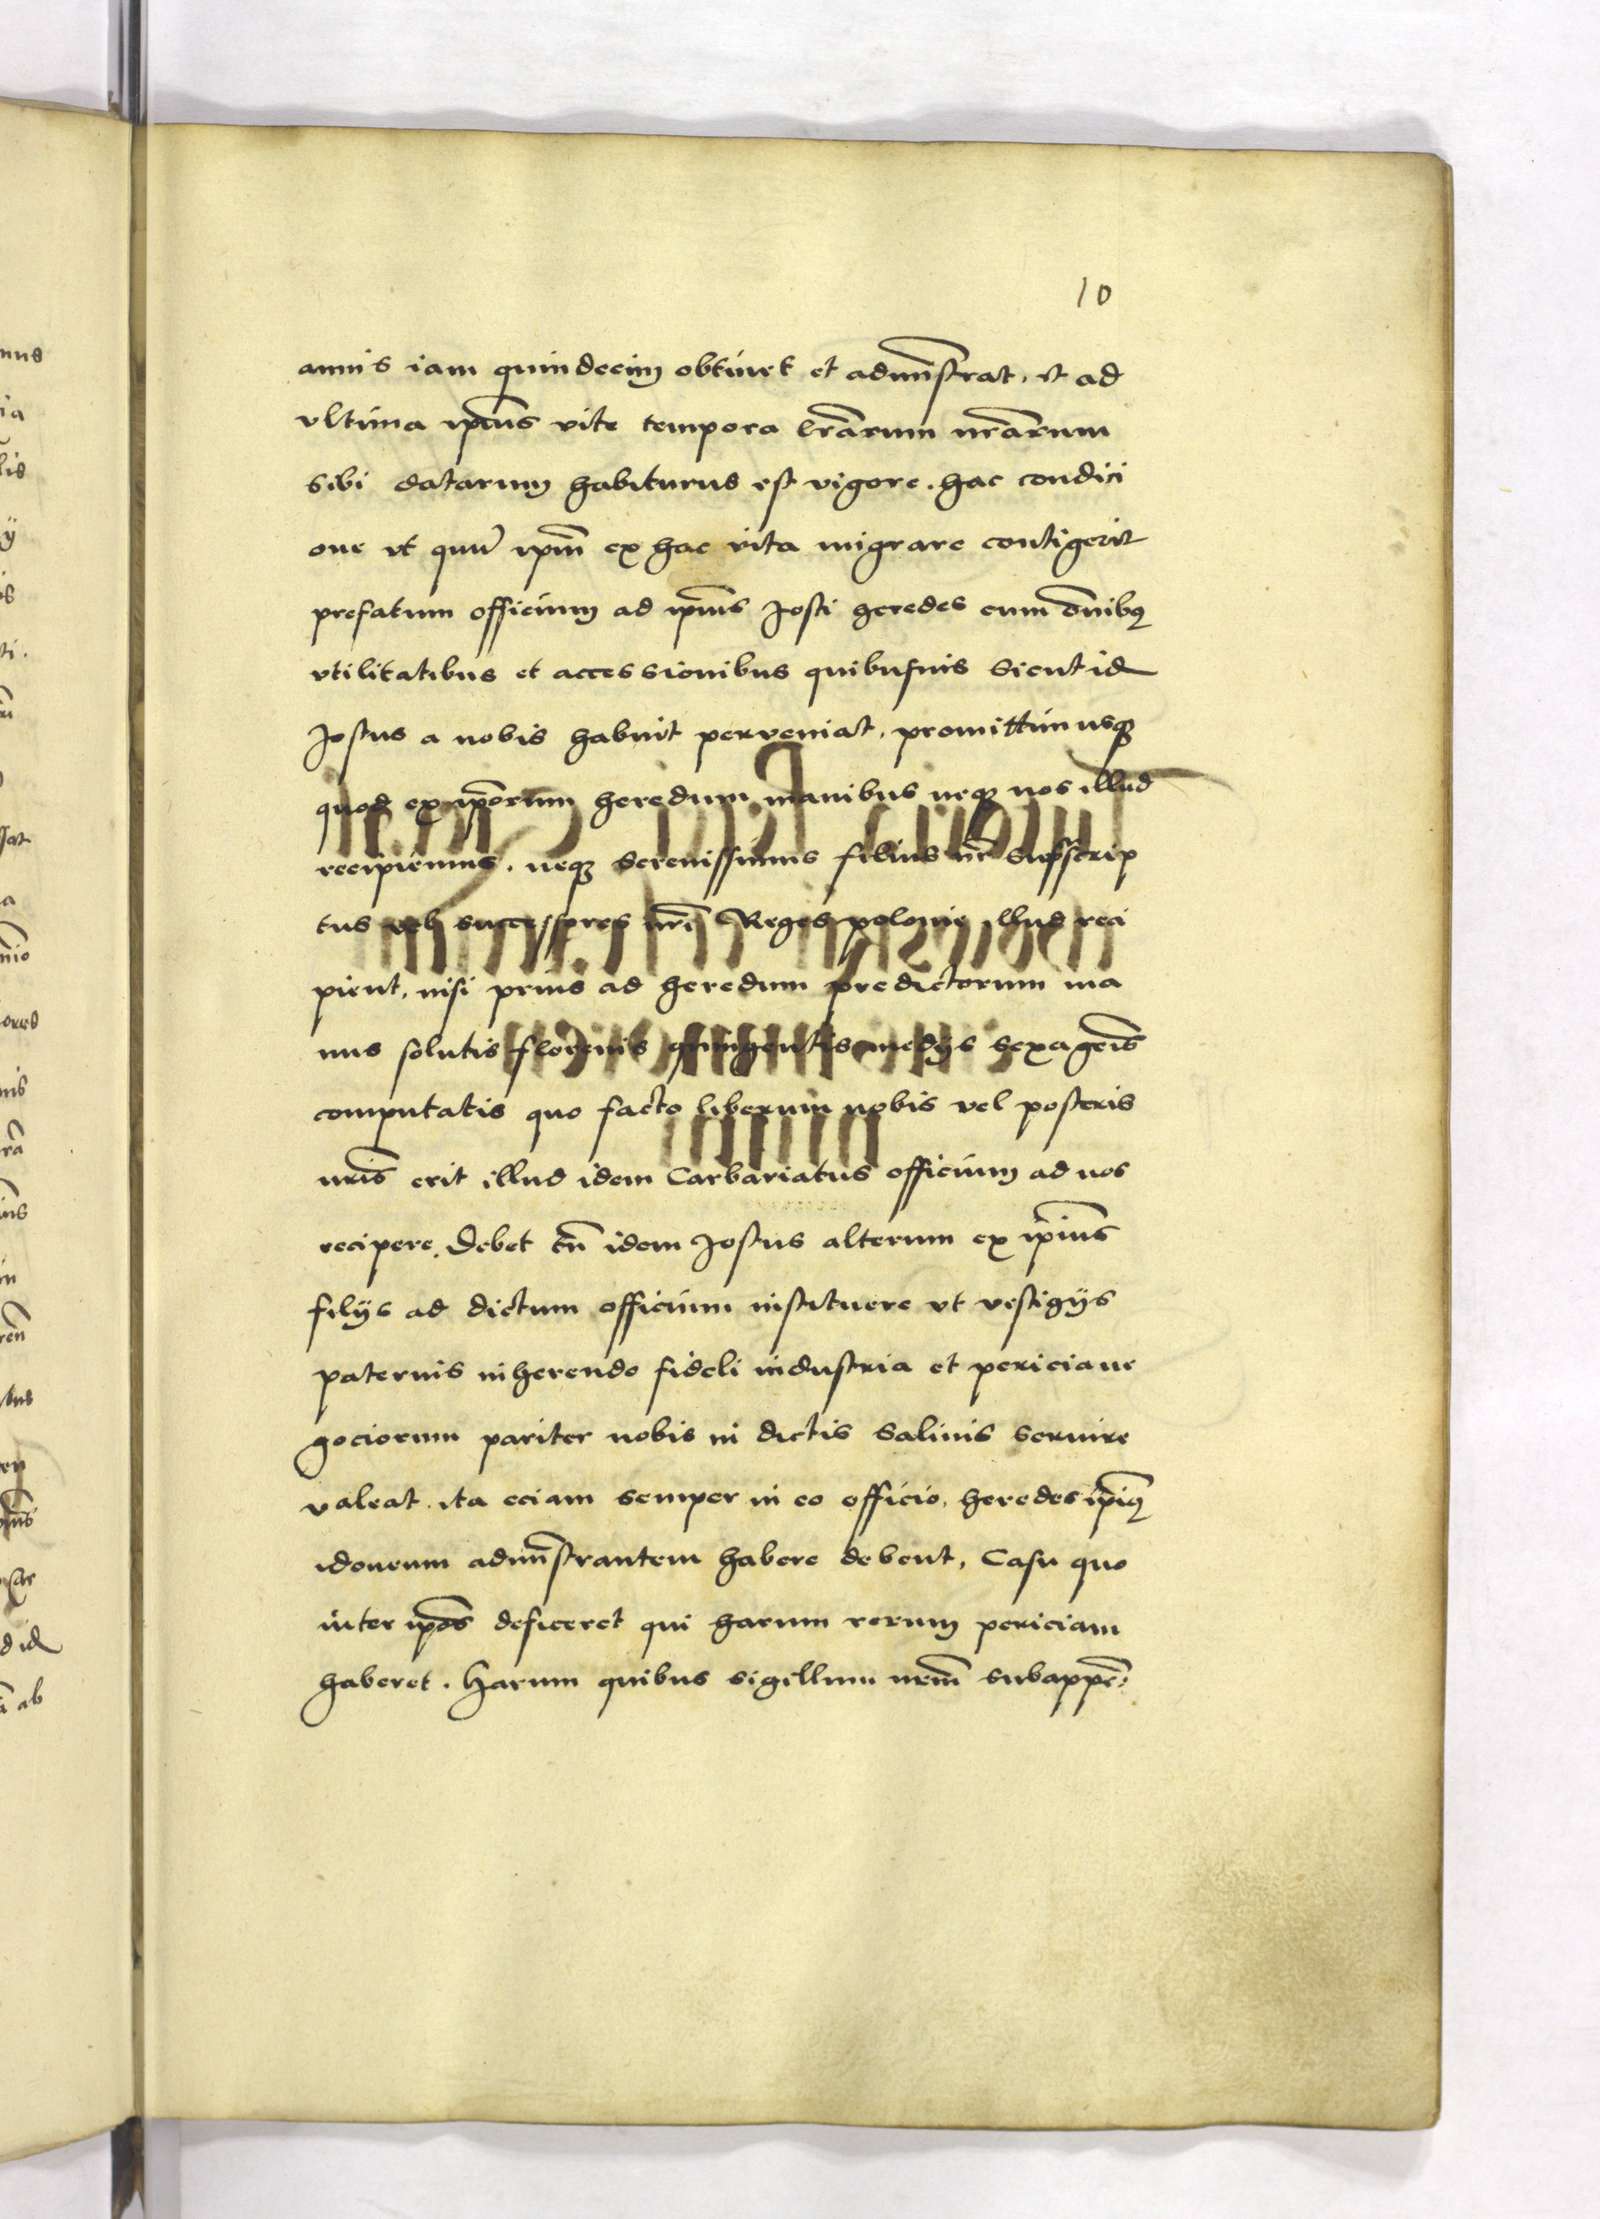 10
annis iam quindecim obtinet et admi͞strat, et ad
vltima ip̅ius vite tempora l͞rarum n͞rarum
sibi datarum habiturus est vigore. hac condici
one vt quu͞ ip͞m ex hac vita migrare contigerit
prefatum officium ad ip͞ius Josti heredes cum o͞mnibꝰ
vtilitatibus et accessionibus quibusuis sicut id
Jostus a nobis habuit perveniat, promittimusqꝫ
quod ex ip͞orum heredum manibus neqꝫ nos illud
recipiemus. neqꝫ serenissimus filius n͞r supscrip
tus vel successores n͞ri Reges polonie illud reci
pient, nisi prius ad heredum predictorum ma
nus solutis florenis quingentis medijs sexage͞is
computatis quo facto liberum nobis vel posteris
n͞ris erit illud idem Carbariatus officium ad nos
recipere. Debet t͞n idem Jostus alterum ex ip͞ius
filijs ad dictum officium instituere vt vestigijs
paternis inherendo fideli industria et pericia ne
gociorum pariter nobis in dictis Salinis seruire
valeat. ita eciam semper in eo officio, heredes ip͞iꝰ
idoneum admi͞strantem habere debent, Casu quo
inter ip͞os deficeret qui harum rerum periciam
haberet. Harum quibus sigillum n͞rm subappe͞: